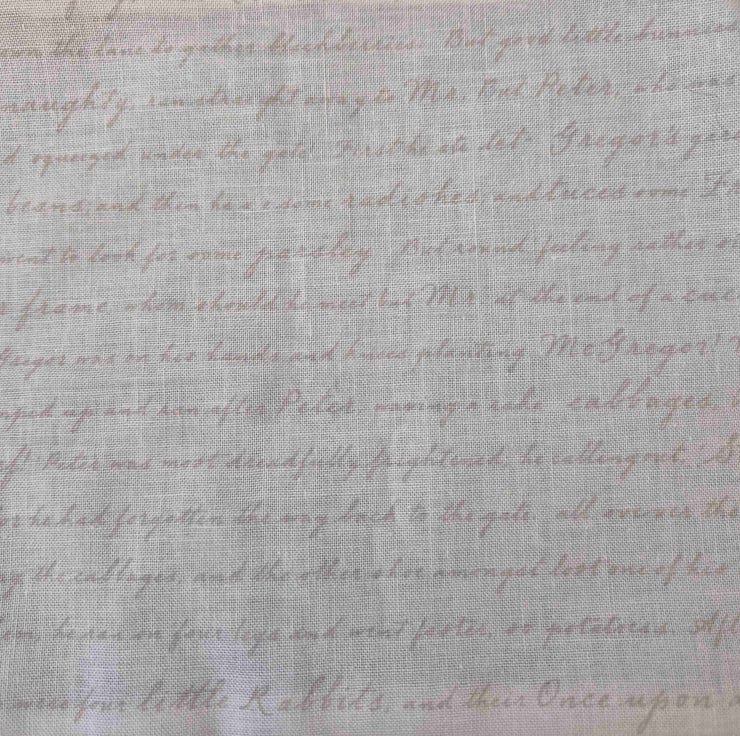 down the lane to gather blackberries. But good little bunnies
naughty, ran straight away to Mr. But Peter, who was
d squeezed under the gate! First he ate let- Gregor's
beans, and then he some radishes, and tuces some
went to look for some parsley But round feeling rather
frame, whom should he meet but Mr at the end of a
Gregor was on his hands and knees planting McGregor!
up and ran after Peter, waving a rake cabbages,
Peter was most dreadfully frightened, he calling out,
for he had forgotten the way back to the gate. all over the
the cabbages, and the other shoe amongst lost one of his
he ran on four legs and went faster, so potatoes.
were four little Rabbits, and their Once upon a